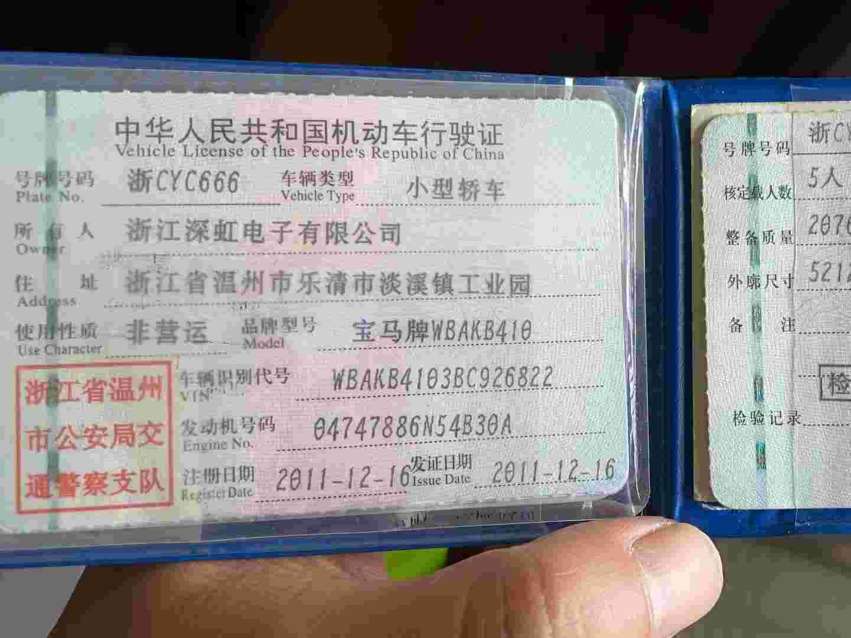 中华人民共和国机动车行驶证
Vehicle License of the People's Republic of China
号牌号码 浙CYC666 车辆类型 小型轿车
Plate No. Vehicle Type
所有人 浙江深虹电子有限公司
Owner
住址 浙江省温州市乐清市淡溪镇工业园
Address
使用性质 非营运 品牌型号 宝马牌WBAKB410
Use Character Model
车辆识别代号 WBAKB4103BC926822
VIN
发动机号码 04747886N54B30A
Engine No.
注册日期 2011-12-16 发证日期 2011-12-16
Register Date Issue Date
浙江省温州
市公安局交
通警察支队
号牌号码 浙CY
核定载人数 5人
整备质量 2076
外廓尺寸 5212
备注
检
检验记录